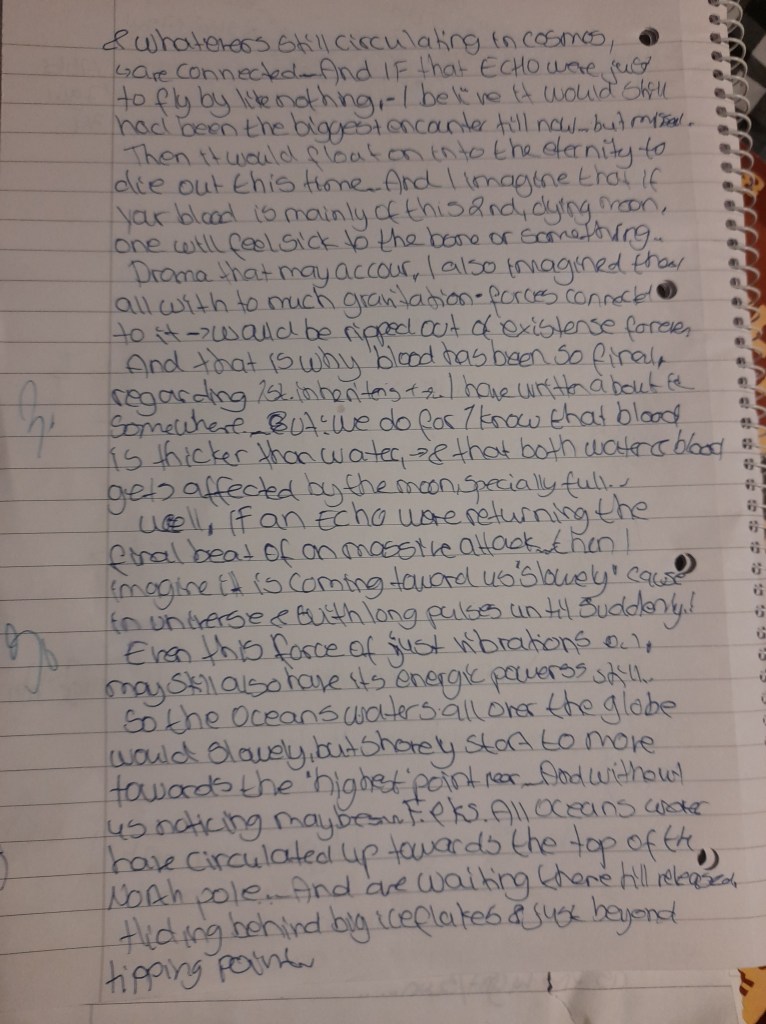 & whaterers still circulating in cosmos,
are connected_And IF that ECHO were just
to fly by like nothing,- I belive it would still
had been the biggest encounter till now_but missed.
Then it would float on into the eternity to
die out this time_And I imagine that if
your blood is mainly of this 2nd, dying moon,
one will feel sick to the bone or something..
Drama that may accour, I also imagined that
all with to much gravitation-forces connected
to it → would be ripped out of existense forever,
And that is why blood has been so final,
regarding 1st. I have written about it
somewhere_ BUT: we do for know that blood
is thicker than water, → & that both water & blood
gets affected by the moon, specially full..
Well, IF an Echo were returning the
final beat of an massive attack_then I
imagine it is coming toward us 'slowely' cause
in universe & with long pulses until suddenly!
Even this force of just vibrations
may still also have its energic powerss still.
So the Oceans waters all over the globe
would slowely, but shorely start to move
towards the 'highest' point _And without
us noticing maybe F.eks. All Oceans water
have circulated up towards the top of the
North pole.._And are waiting there till released,
Hiding behind big iceflakes & just beyond
tipping point